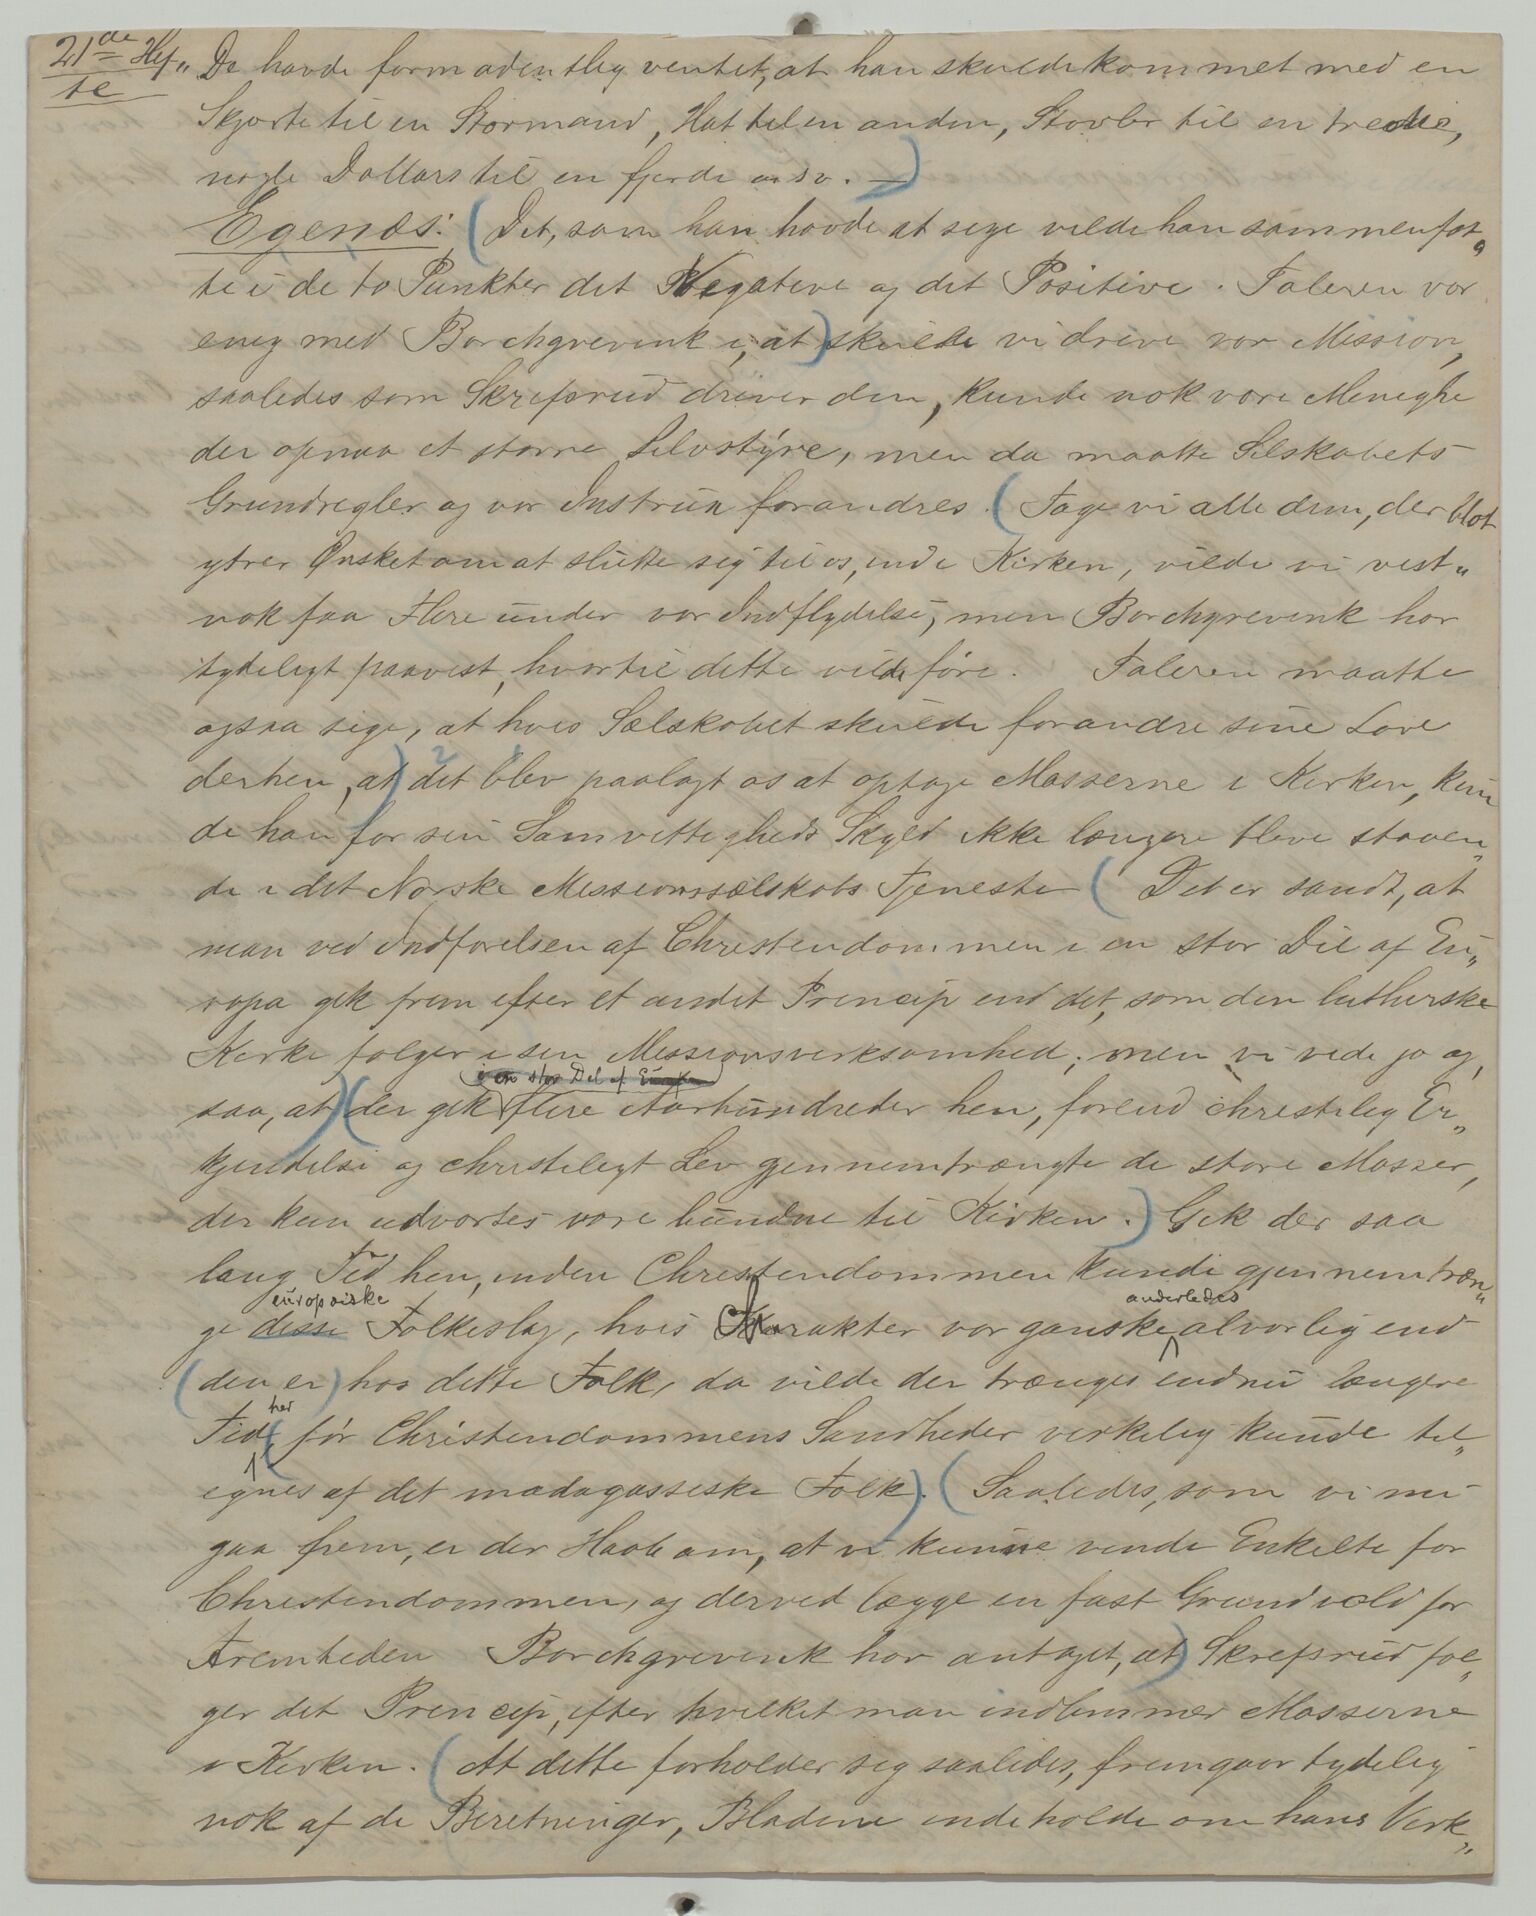 21de Hef„
te
De havde formodentlig ventet, at han skulde kommet med en
Skjorte til en Stormand, Hat til en anden, Støvler til en tredie,
nogle Dollars til en fjerde osv. —)
Egenæs: (Det, som han havde at sige vilde han sammenfat„
te i de to Punkter det Negative og det Positive. Taleren var
enig med Borchgrevink i, at) skulde vi drive vor Mission,
saaledes som Skrefsrud driver den, kunde nok vore Menighe
der opnaa et større Selvstyre, men da maatte Selskabets
Grundregler og vor Instrux forandres. (Tage vi alle dem, der blot
ytrer Ønsket om at slutte sig til os, ind i Kirken, vilde vi vist„
nok faa Flere under vor Indflydelse, men Borchgrevink har
tydeligt paavist, hvortil dette vilde føre. Taleren maatte
ogsaa sige, at hvis Sælskabet skulde forandre sine Love
derhen, at) det blev paalagt os at optage Masserne i Kirken, kun
de han for sin Samvittigheds Skyld ikke længere blive staaen„
de i det Norske Missionssælskabs Tjeneste (Det er sandt, at
man ved Indførelsen af Christendommen i en stor Del af Eu„
ropa gik frem efter et andet Princip end det, som den lutherske
Kirke følger i sin Missionsvirksomhed; men vi vide jo og„
i en stor Del af Europa
saa, at) (der gik flere Aarhundreder hen, førend christelig Er„
kjendelse og christeligt Lev gjennemtrængte de store Masser,
der kun udvortes vare bundne til Kirken.) Gik der saa
lang Tid hen, inden Christendommen kunde gjennemtræn„
europæiske anderledes
ge disse Folkeslag, hvis Karakter var ganske alvorlig end
(den er) hos dette Folk, da vilde der trænges endnu længere
her
Tid, (før Christendommens Sandheder virkelig kunde til„
egnes af det madagassiske Folk). (Saaledes, som vi nu
gaa frem, er der Haab om, at vi kunne vinde Enkelte for
Christendommen, og derved lægge en fast Grundvold for
Fremtiden Borchgrevink har antaget, at) Skrefsrud føl„
ger det Princip, efter hvilket man indlemmer Masserne
i Kirken. (At dette forholder sig saaledes, fremgaar tydelig
nok af de Beretninger, Bladene indeholde om hans Virk„